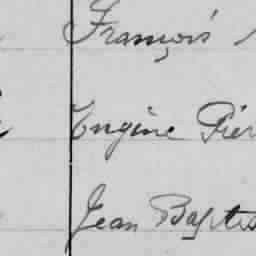 François
Eugène Pier
Jean Baptis